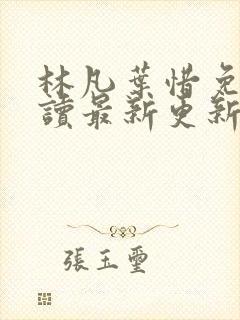 林凡葉惜免
讀最新更新
張玉璽